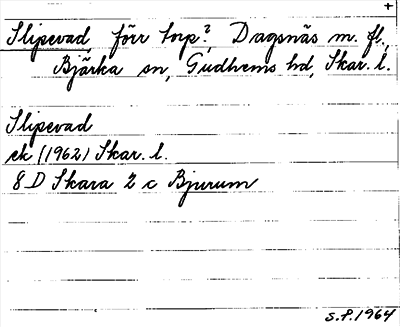 +
Slipevad, förr torp?, Dagsnäs m. fl.,
Bjärka sn, Gudhems hd, Skar. l.
Slipevad
ek (1962) Skar. l.
8D Skara 2 c Bjurum
S.P. 1964